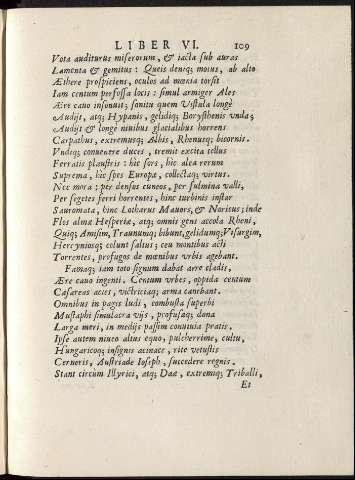 LIBER VI. 109
Vota auditurus miserorum, & iacta sub auras
Lamenta & gemitus: Queis deniq; motus, ab alto
Æthere prospiciens, oculos ad mœnia torsit
Iam centum perfossa locis: simul armiger Ales
Ære cauo insonuit; sonitu quem Vistula longè
Audijt, atq; Hypanis, gelidiq; Borysthenis vnda;
Audijt & longè niuibus glacialibus horrens
Carpathus, extremusq; Albis, Rhenusq; bicornis.
Vndiq; conuenere duces, tremit excita tellus
Ferratis plaustris: hîc sors, hîc alea rerum
Suprema, hîc spes Europæ, collectaq; virtus.
Nec mora; per densos cuneos, per fulmina valli,
Per segetes ferri horrentes, hinc turbinis instar
Sauromata, hinc Lotharus Mauors, & Noricus; inde
Flos alma Hesperia, atq; omnis gens accola Rheni,
Quiq; Amisim, Traunumq; bibunt, gelidumq; Visurgim,
Hercyniosq; colunt saltus; ceu montibus acti
Torrentes, profugos de mœnibus vrbis agebant.
Famaq; iam toto signum dabat ære cladis,
Ære cauo ingenti. Centum vrbes, oppida centum
Cæsareas acies, victriciaq; arma canebant.
Omnibus in pagis ludi, combusta superbi
Mustaphi simulacra vijs, profusaq; dona
Larga meri, in medijs passim conuiuia pratis.
Ipse autem niueo altus equo, pulcherrime, cultu,
Hungaricoq; insignis acinace, rite vetustis
Cerneris, Austriade Ioseph, succedere regnis.
Stant circùm Illyrici, atq; Daæ, extremiq; Triballi,
Et